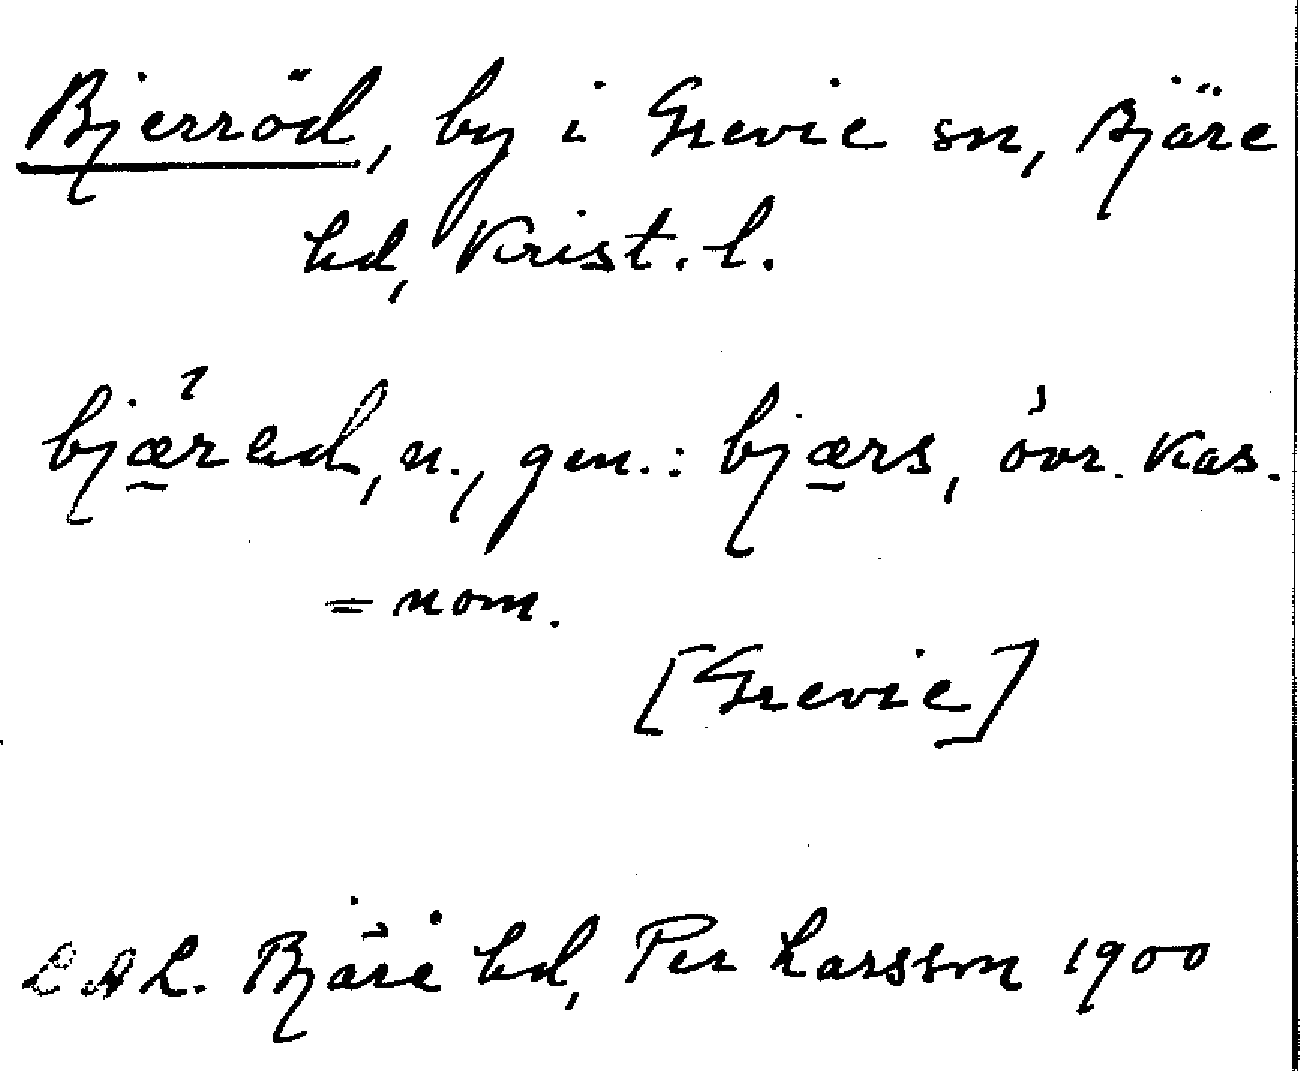 Bjerröd, by i Grevie sn, Bjäre
hd, Krist. l.
bjæ̱rad, n., gen.: bjæ̱rs, övr. kas.
= nom.
[Grevie]
LAL. Bjäre hd, Per Larsson 1900